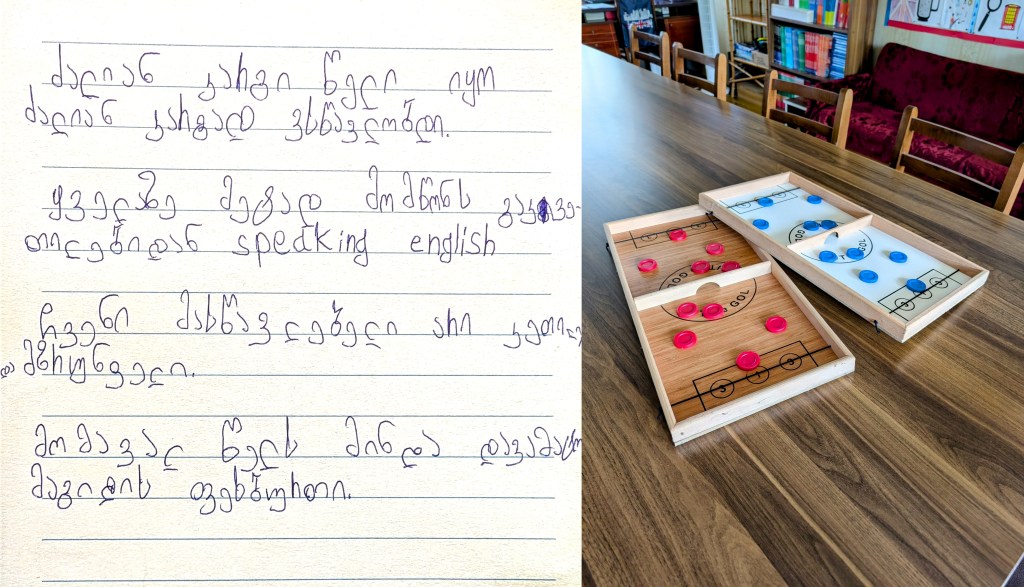 ძალიან კარგი წელი იყო
ძალიან კარგად ვსწავლობდი.
ყველაზე მეტად მომწონს გაკვე-
თილებიდან speaking english
ჩვენი მასწავლებელი არი კეთილი
და მზრუნველი.
მომავალ წელს მინდა დავამატო
მაგიდის ფეხბურთი.
GOL
GOL